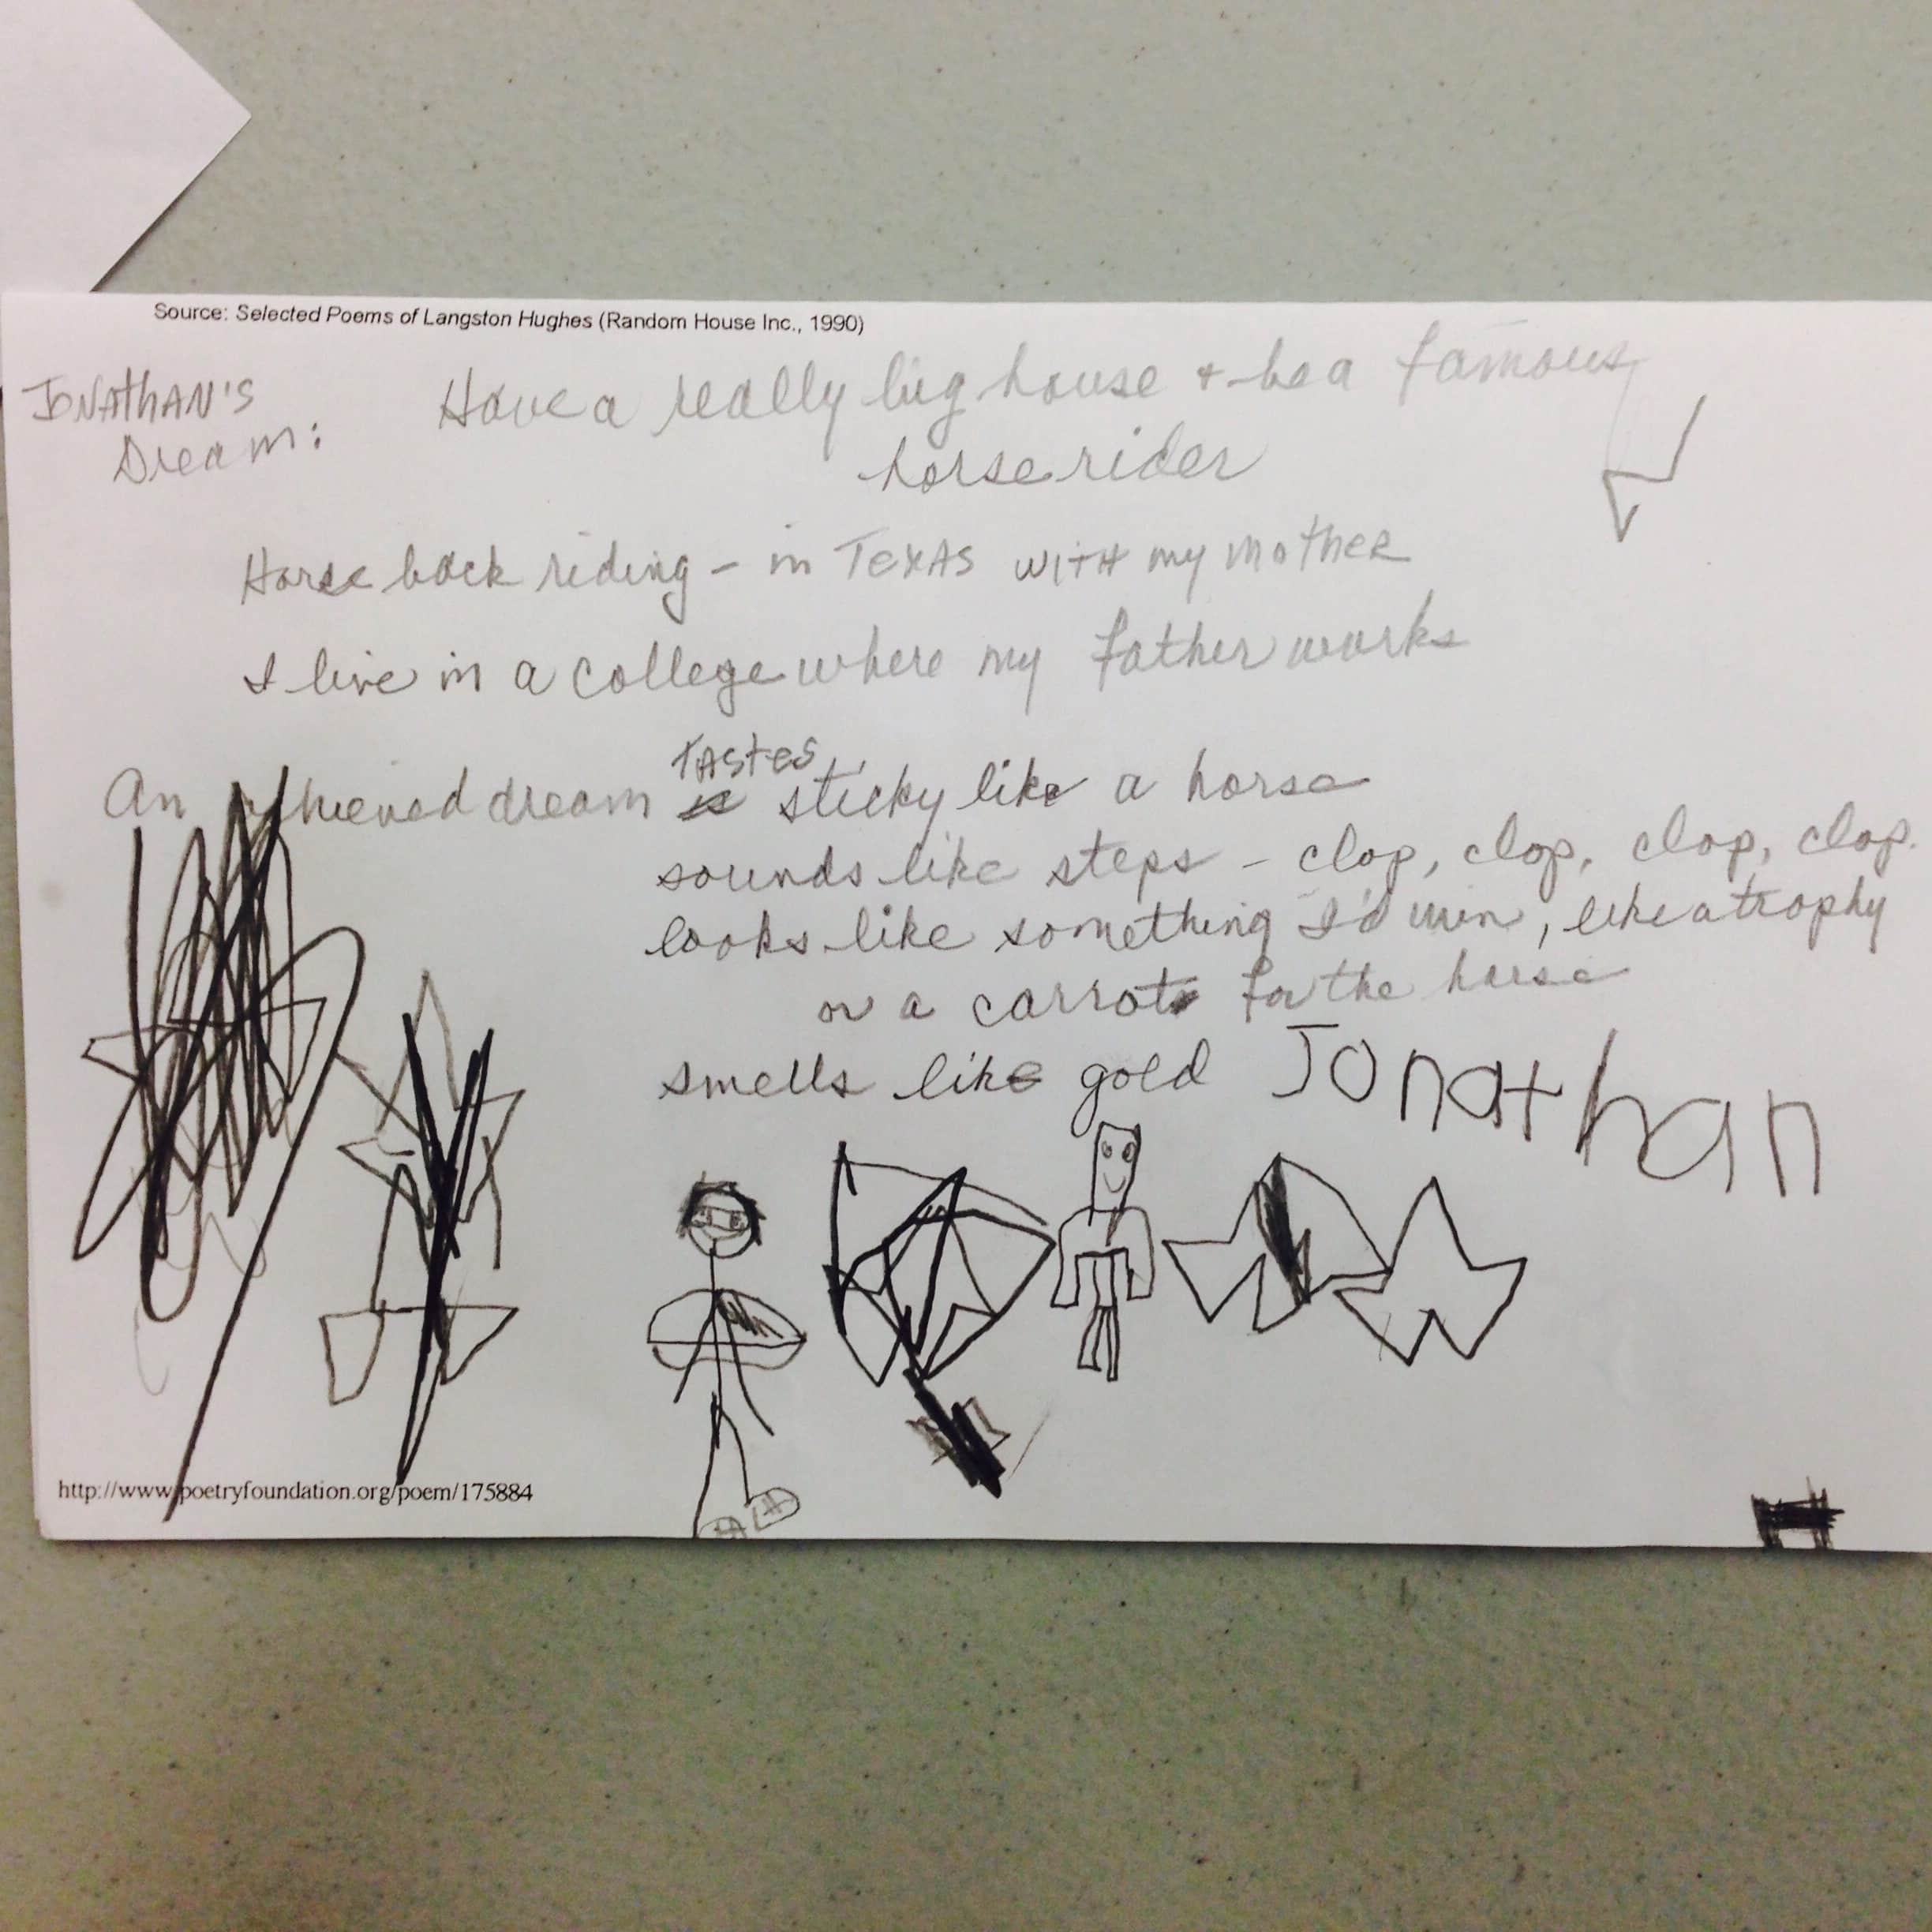 Source: Selected Poems of Langston Hughes (Random House Inc., 1990)
JONATHAN'S
Dream:
Have a really big house + be a famous
horse rider
Horse back riding - in TEXAS WITH my mother
I live in a college where my father works
TASTES
An achieved dream is sticky like a horse
sounds like steps - clop, clop, clop, clop.
looks like something I'd win, like a trophy
or a carrot for the horse
smells like gold
Jonathan
http://www.poetryfoundation.org/poem/175884